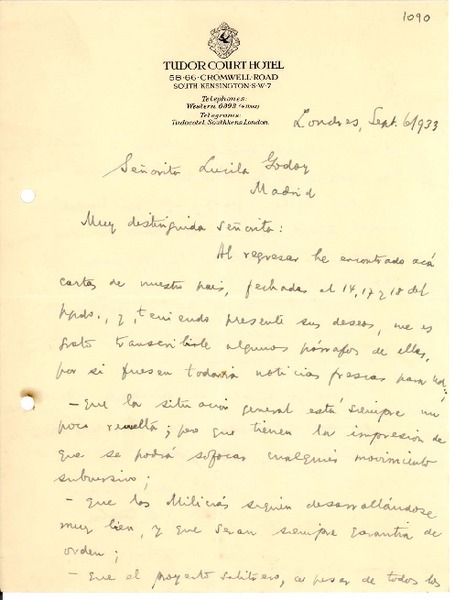 1090
TUDOR COURT HOTEL
58-66-CROMWELL-ROAD
SOUTH KENSINGTON-S-W-7
Telephones:
Western 6393 (4 lines)
Telegrams:
Tudorotel Southkens London.
Londres, Sept. 6/933
Señorita Lucila Godoy
Madrid
Muy distinguida señorita:
Al regresar he encontrado acá
cartas de nuestro país, fechadas al 14, 17 y 18 del
ppdo., y, teniendo presente sus deseos, me es
grato transcribirle algunos párrafos de ellas,
por si fuesen todavía noticias frescas para Ud:
- que la situación general está siempre un
poco revuelta; pero que tienen la impresión de
que se podrá sofocar cualquier movimiento
subversivo;
- que las Milicias siguen desarrollándose
muy bien, y que serán siempre garantía de
orden;
- que el proyecto salitrero, a pesar de todos los